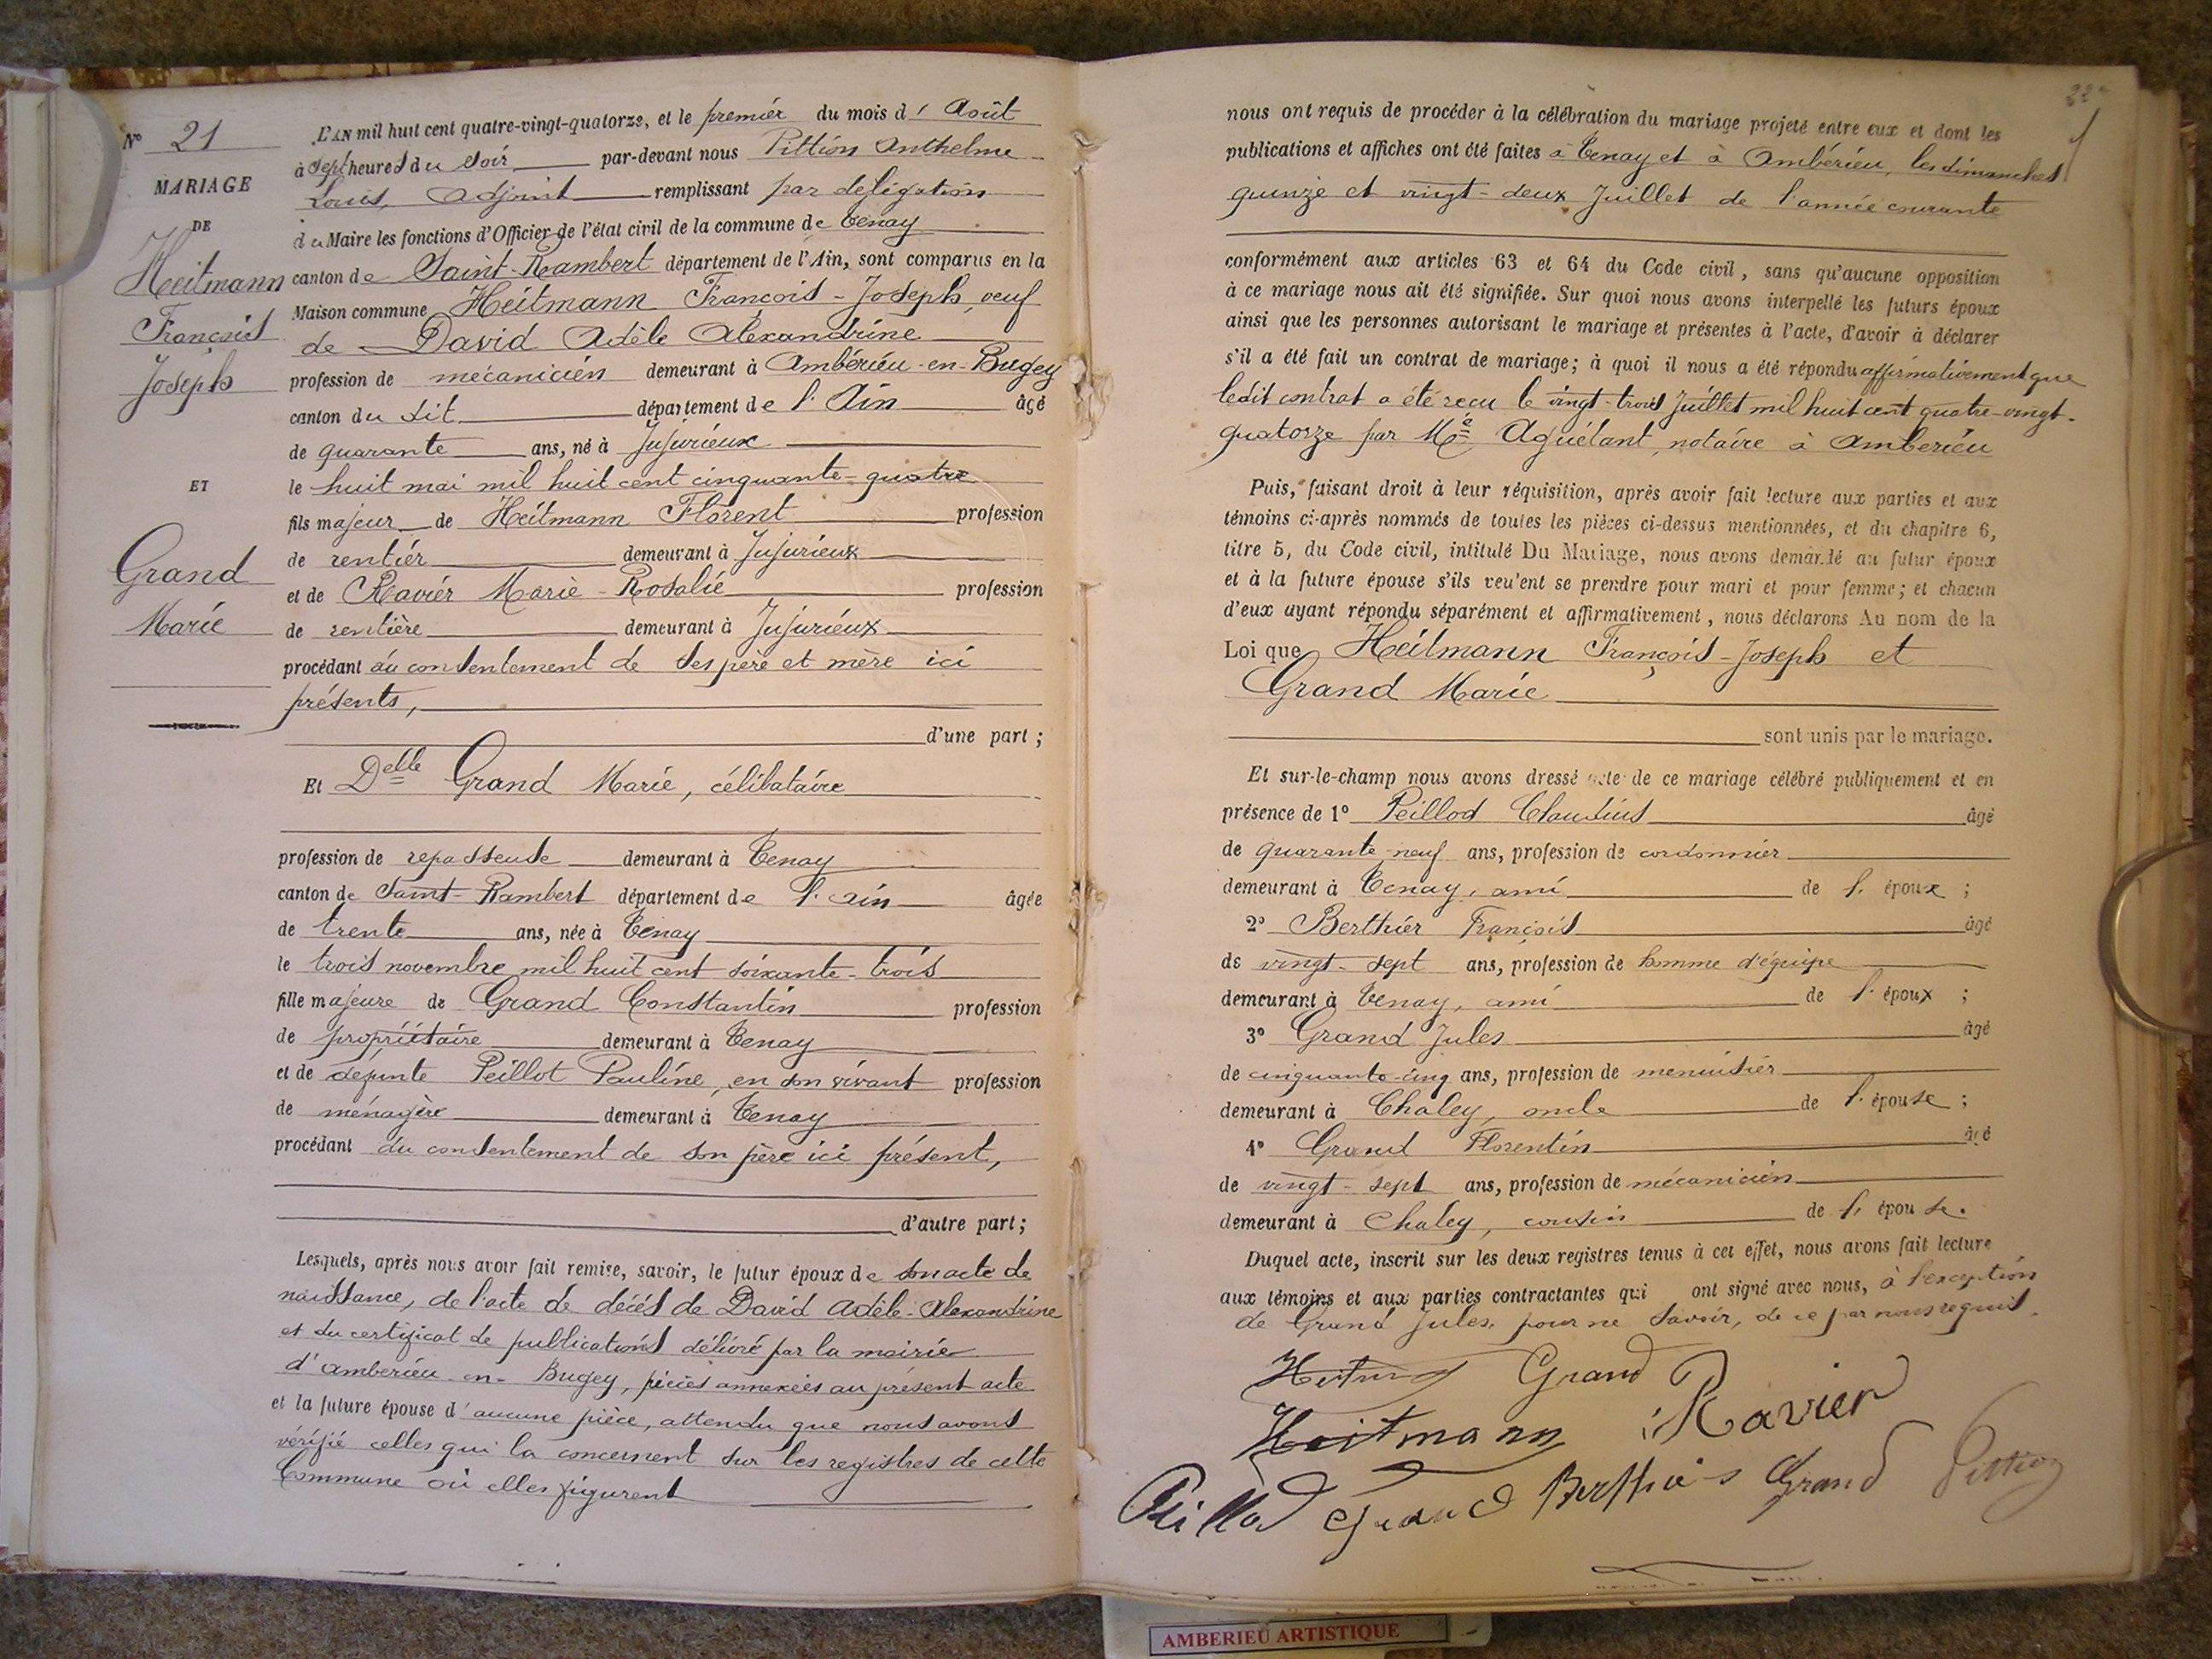 Nº 21
MARIAGE
DE
Heitmann
François
Joseph
ET
Grand
Marie
L'AN mil huit cent quatre-vingt-quatorze, et le premier du mois d'Août
à sept heures du soir par-devant nous Pittion Anthelme
Louis, adjoint remplissant par délégation
du Maire les fonctions d'Officier de l'état civil de la commune de Tenay
canton de Saint-Rambert département de l'Ain, sont comparus en la
Maison commune Heitmann François-Joseph, veuf
de David Adèle Alexandrine
profession de mécanicien demeurant à Ambérieu-en-Bugey
canton du dit département de l'Ain âgé
de quarante ans, né à Jujurieux
le huit mai mil huit cent cinquante-quatre
fils majeur de Heitmann Florent profession
de rentier demeurant à Jujurieux
et de Ravier Marie-Rosalie profession
de rentière demeurant à Jujurieux
procédant du consentement de ses père et mère ici
présents,
d'une part;
Et Delle Grand Marie, célibataire
profession de repasseuse demeurant à Tenay
canton de Saint-Rambert département de l'ain âgée
de trente ans, née à Tenay
le trois novembre mil huit cent soixante-trois
fille majeure de Grand Constantin profession
de propriétaire demeurant à Tenay
et de défunte Peillot Pauline, en son vivant profession
de ménagère demeurant à Tenay
procédant du consentement de son père ici présent,
d'autre part;
Lesquels, après nous avoir fait remise, savoir, le futur époux de son acte de
naissance, de l'acte de décès de David Adèle-Alexandrine
et du certificat de publications délivré par la mairie
d'Amberieu-en-Bugey, pièces annexées au présent acte
et la future épouse d'aucune pièce, attendu que nous avons
vérifié celles qui la concernent sur les registres de cette
Commune où elles figurent
nous ont requis de procéder à la célébration du mariage projeté entre eux et dont les
publications et affiches ont été faites à Tenay et à Ambérieu, les dimanches
quinze et vingt-deux Juillet de l'année courante
conformément aux articles 63 et 64 du Code civil, sans qu'aucune opposition
à ce mariage nous ait été signifiée. Sur quoi nous avons interpellé les futurs époux
ainsi que les personnes autorisant le mariage et présentes à l'acte, d'avoir à déclarer
s'il a été fait un contrat de mariage; à quoi il nous a été répondu affirmativement que
ledit contrat a été reçu le vingt-trois Juillet mil huit cent quatre-vingt-
quatorze par Me Aguétant, notaire à Amberieu
Puis, faisant droit à leur réquisition, après avoir fait lecture aux parties et aux
témoins ci-après nommés de toutes les pièces ci-dessus mentionnées, et du chapitre 6,
titre 5, du Code civil, intitulé Du Mariage, nous avons demandé au futur époux
et à la future épouse s'ils veulent se prendre pour mari et pour femme; et chacun
d'eux ayant répondu séparément et affirmativement, nous déclarons Au nom de la
Loi que Heitmann François-Joseph et
Grand Marie
sont unis par le mariage.
Et sur-le-champ nous avons dressé acte de ce mariage célébré publiquement et en
présence de 1º Peillod Claudius âgé
de quarante-neuf ans, profession de cordonnier
demeurant à Tenay, ami de l'époux;
2º Berthier François âgé
de vingt-sept ans, profession de homme d'équipe
demeurant à Tenay, ami de l'époux;
3º Grand Jules âgé
de cinquante-cinq ans, profession de menuisier
demeurant à Chaley, oncle de l'épouse;
4º Grand Florentin âgé
de vingt-sept ans, profession de mécanicien
demeurant à Chaley, cousin de l'épouse.
Duquel acte, inscrit sur les deux registres tenus à cet effet, nous avons fait lecture
aux témoins et aux parties contractantes qui ont signé avec nous, à l'exception
de Grand Jules, pour ne savoir, de ce par nous requis.
Heitmann Grand
Heitmann Ravier
Peillod Grand Berthier Grand Pittion
AMBERIEU ARTISTIQUE